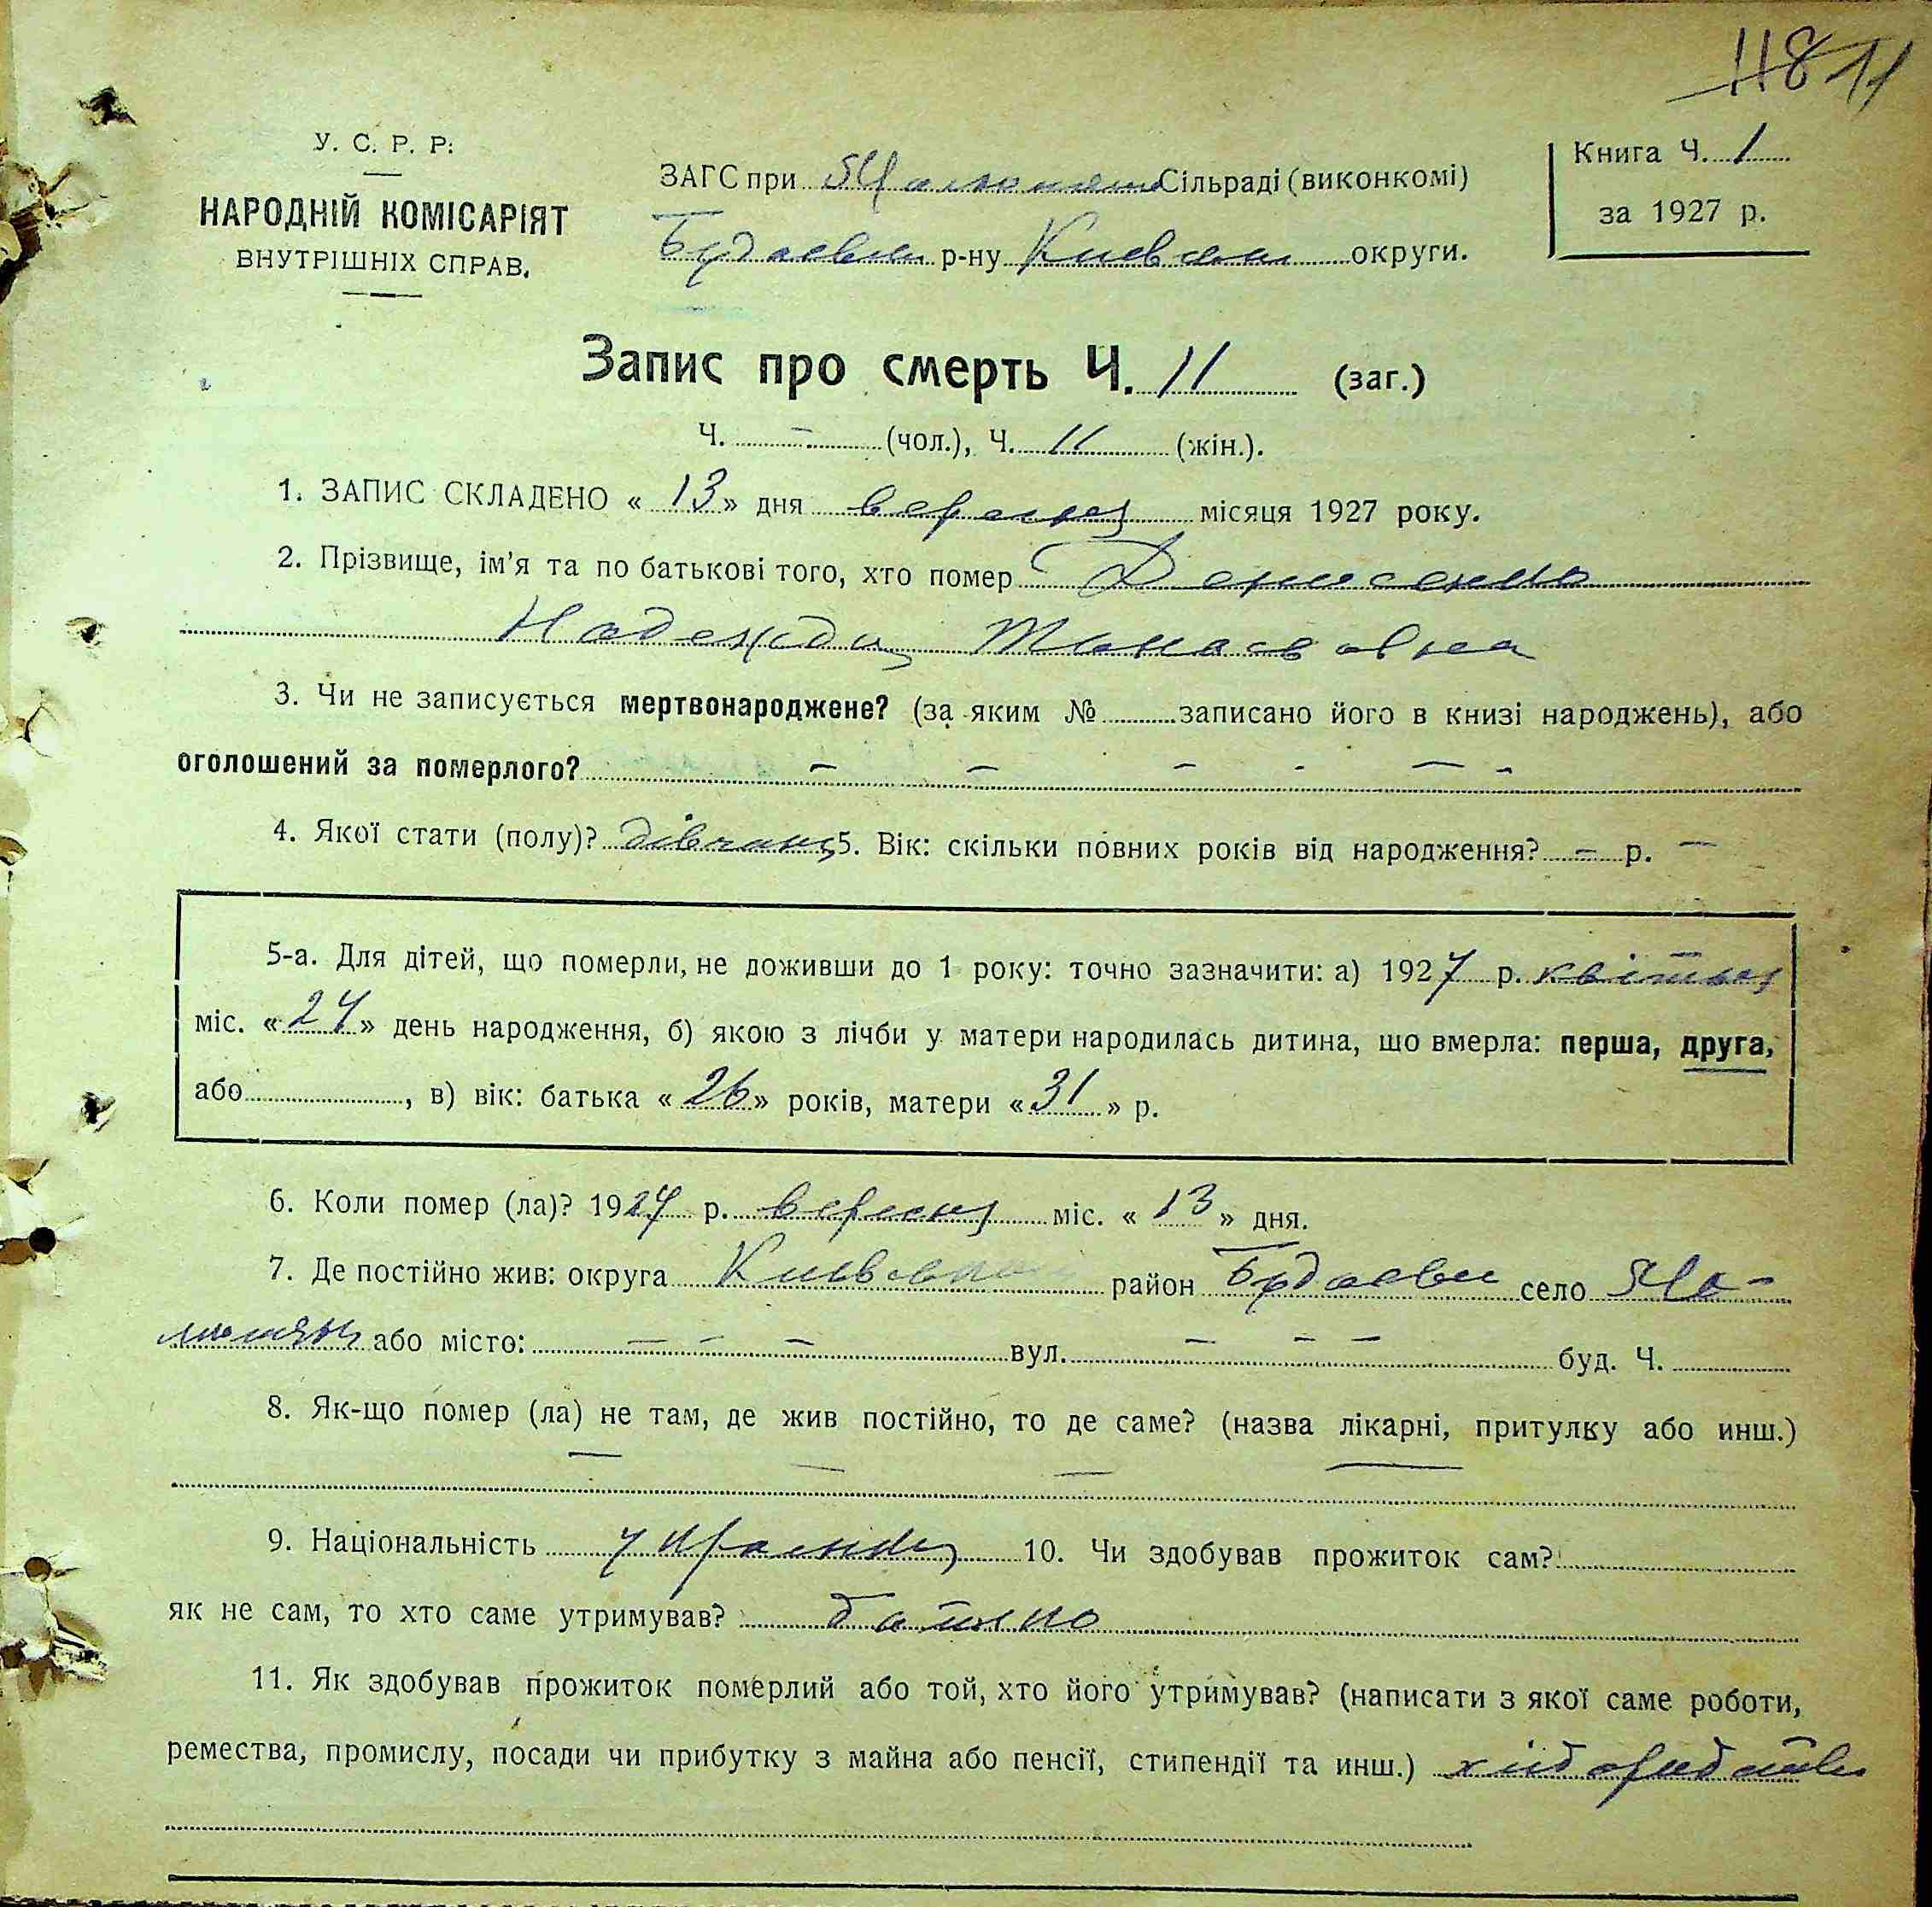 11
У. С. Р. Р.
НАРОДНІЙ КОМІСАРІЯТ
ВНУТРІШНІХ СПРАВ.
ЗАГС при Сільраді (виконкомі)
р-ну округи.
Книга Ч. 1
за 1927 р.
Запис про смерть Ч. 11 (заг.)
Ч. – (чол.), Ч. 11 (жін.).
1. ЗАПИС СКЛАДЕНО « 13 » дня вересня місяця 1927 року.
2. Прізвище, ім'я та по батькові того, хто помер Денисенко
Надежда
3. Чи не записується мертвонароджене? (за яким № записано його в книзі народжень), або
оголошений за померлого? – – – - – -
4. Якої стати (полу)? дівчина 5. Вік: скільки повних років від народження? – р. –
5-а. Для дітей, що померли, не доживши до 1 року: точно зазначити: а) 1927 р. квітня
міс. « » день народження, б) якою з лічби у матери народилась дитина, що вмерла: перша, друга,
або , в) вік: батька « 26 » років, матери « 31 » р.
6. Коли помер (ла)? 1927 р. вересня міс. « 13 » дня.
7. Де постійно жив: округа район село
або місто: – – – вул. – – – буд. Ч.
8. Як-що помер (ла) не там, де жив постійно, то де саме? (назва лікарні, притулку або инш.)
– – – –
9. Національність 10. Чи здобував прожиток сам?
як не сам, то хто саме утримував? батько
11. Як здобував прожиток померлий або той, хто його утримував? (написати з якої саме роботи,
ремества, промислу, посади чи прибутку з майна або пенсії, стипендії та инш.)